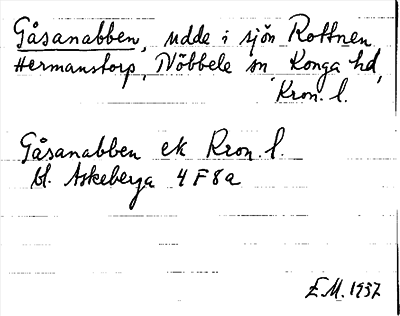 Gåsanabben, udde i sjön Rottnen
Hermanstorp, Nöbbele sn, Konga hd,
Kron. l.
Gåsanabben ek Kron. l.
bl. Askeberga 4 F 8 a
E.M. 1937